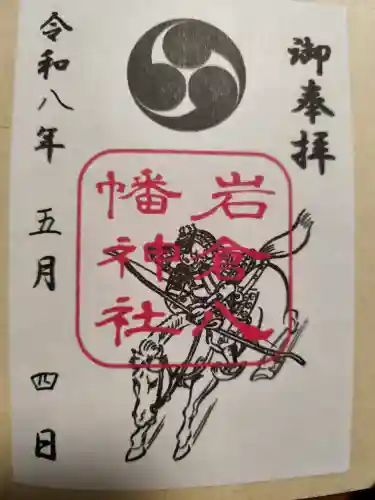 御奉拝
岩倉八
幡神社
令和八年 五月 四日